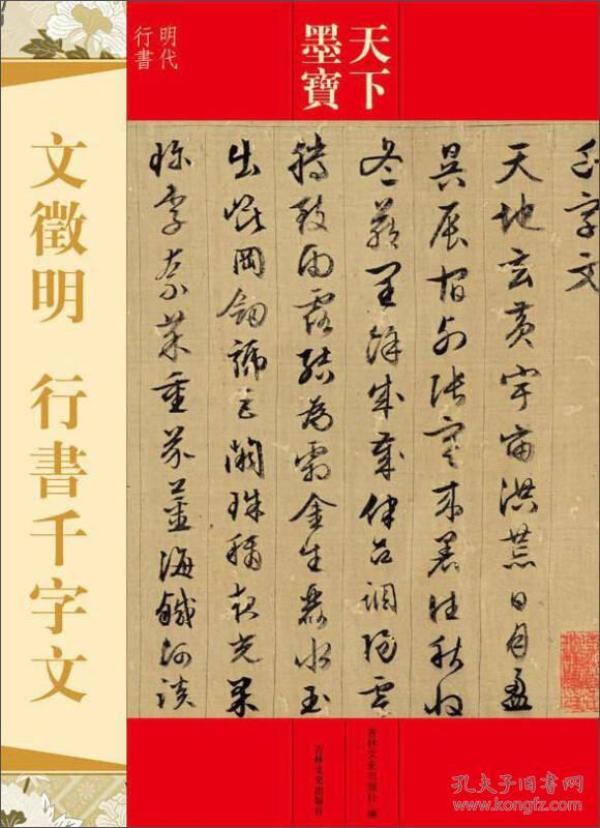 天下
墨寶
明代
行書
文徵明 行書千字文
千字文
天地玄黄宇宙洪荒日月盈
昃辰宿列張寒来暑往秋收
冬藏閏餘成歲律吕調陽雲
騰致雨露結為霜金生麗水玉
出崑岡劍號巨闕珠稱夜光果
珍李柰菜重芥薑海鹹河淡
吉林文史出版社 編
吉林文史出版社
孔夫子旧书网
www.kongfz.com